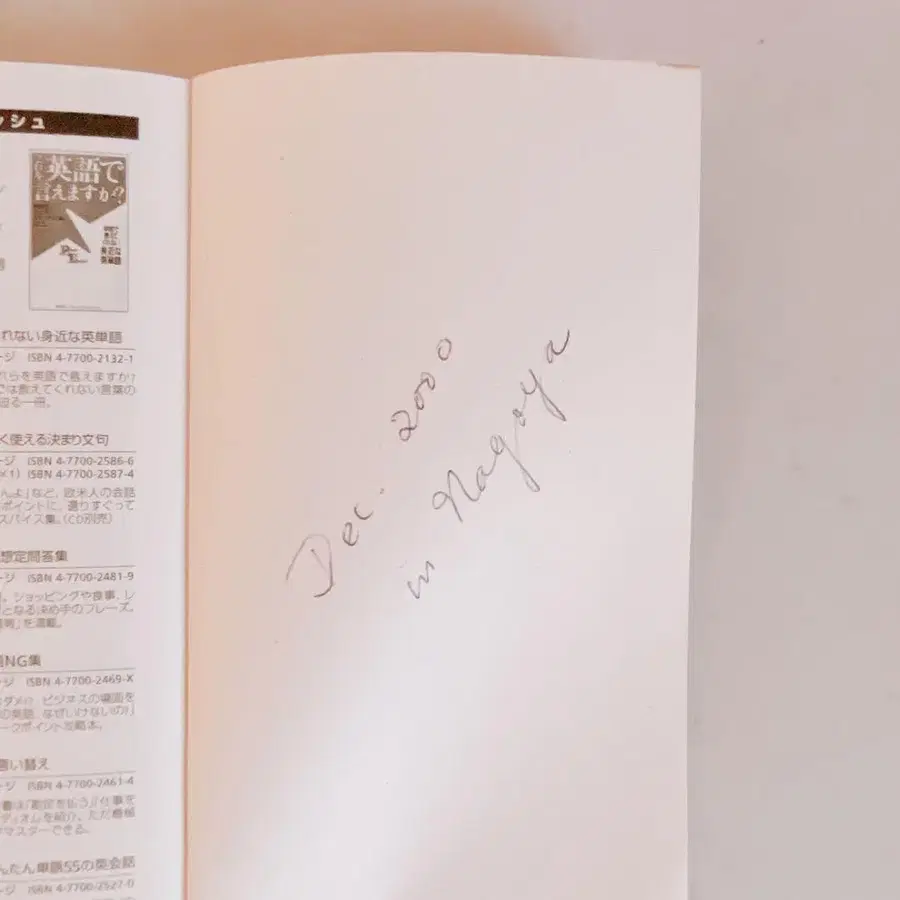 ッシュ
英語で
言えますか?
れない身近な英単語
ージ ISBN 4-7700-2132-1
れらを英語で言えますか?
では教えてくれない言葉の
迫る一冊。
く使える決まり文句
ージ (ISBN 4-7700-2586-6
×1) ISBN 4-7700-2587-4
んよ」など、欧米人の会話
ポイントに、選りすぐって
スパイス集。(CD別売)
想定問答集
ージ ISBN 4-7700-2481-9
。ショッピングや食事、レ
となる決め手のフレーズ。
」を満載。
NG集
ージ ISBN 4-7700-2469-X
ダメ!? ビジネスの場面を
の英語、なぜいけないの!
ークポイント攻略本。
言い替え
ージ ISBN 4-7700-2461-4
「勘定を払う」「仕事を
ディオムを紹介、ただ
マスターできる。
んたん単語55の英会話
ージ ISBN 4-7700-2527-0
Dec. 2000
in Nagoya